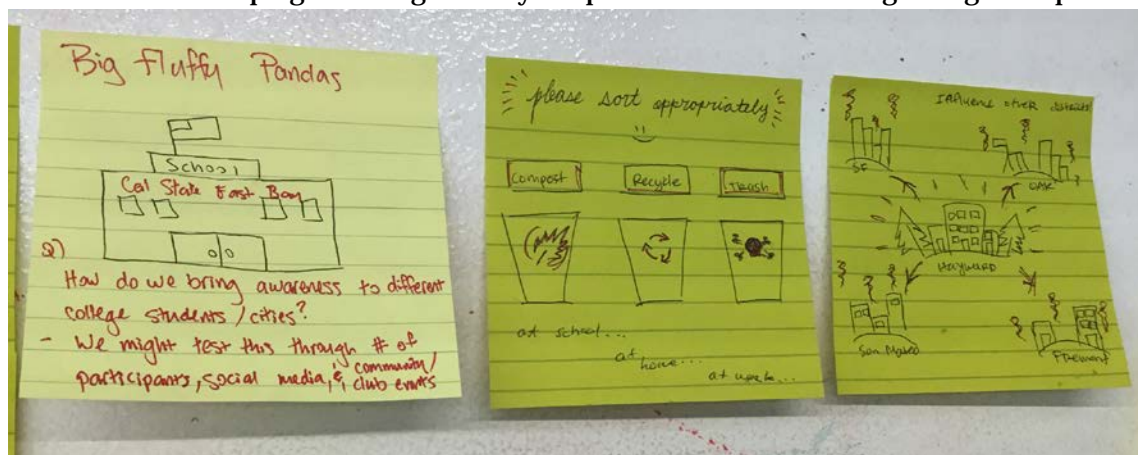 Big Fluffy Pandas
School
Cal State East Bay
2)
How do we bring awareness to different
college students / cities?
- We might test this through # of
participants, social media, & community/
club events
please sort appropriately
Compost
Recycle
Trash
at school...
at home...
at work...
Influence other districts
SF
OAK
HAYWARD
San Mateo
Fremont